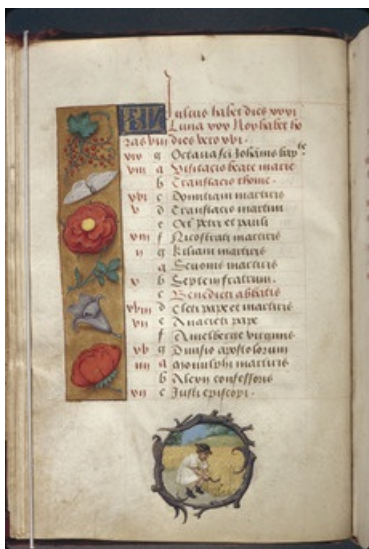 KL Iulius habet dies xxxi
Luna xxx Nox habet ho
ras viii dies vero xvi.
xix g Octava sci Johanis bapt
viii a Visitacio beate marie
b Translacio thome.
xvi c martiris
v d Translacio martini
e Oct petri et pauli
xiii f Nicostrati martiris
ii g Kiliani martiris
a martiris
x b Septem fratrum.
c Benedicti abbatis
xviii d Cleti pape et martiris
vii e Anacleti pape
f Amelberge virginis
xv g Divisio apostolorum
iiii a Monulphi martiris
b Alexii confessoris
xii c episcopi.